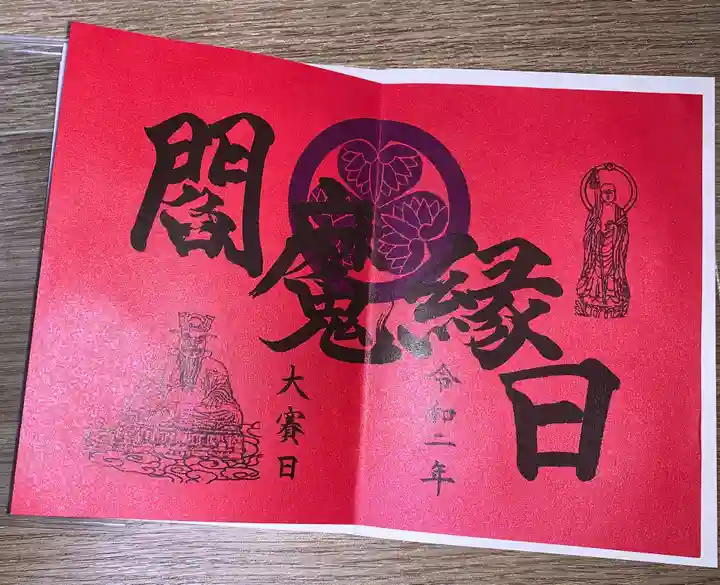 閻魔縁日
令和二年
大賽日